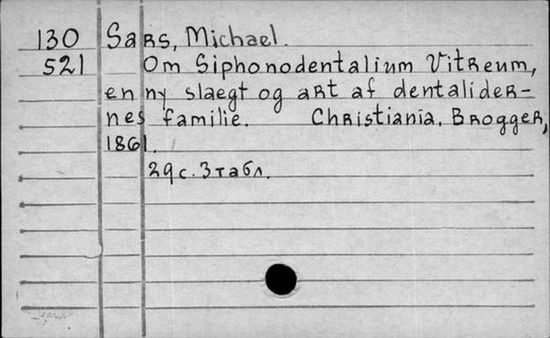 130 Sars, Michael.
521 Om Siphonodentalium Vitreum,
en ny slaegt og art af dentalider-
nes familie. Christiania, Brogger,
1861.
29 с. 3 табл.